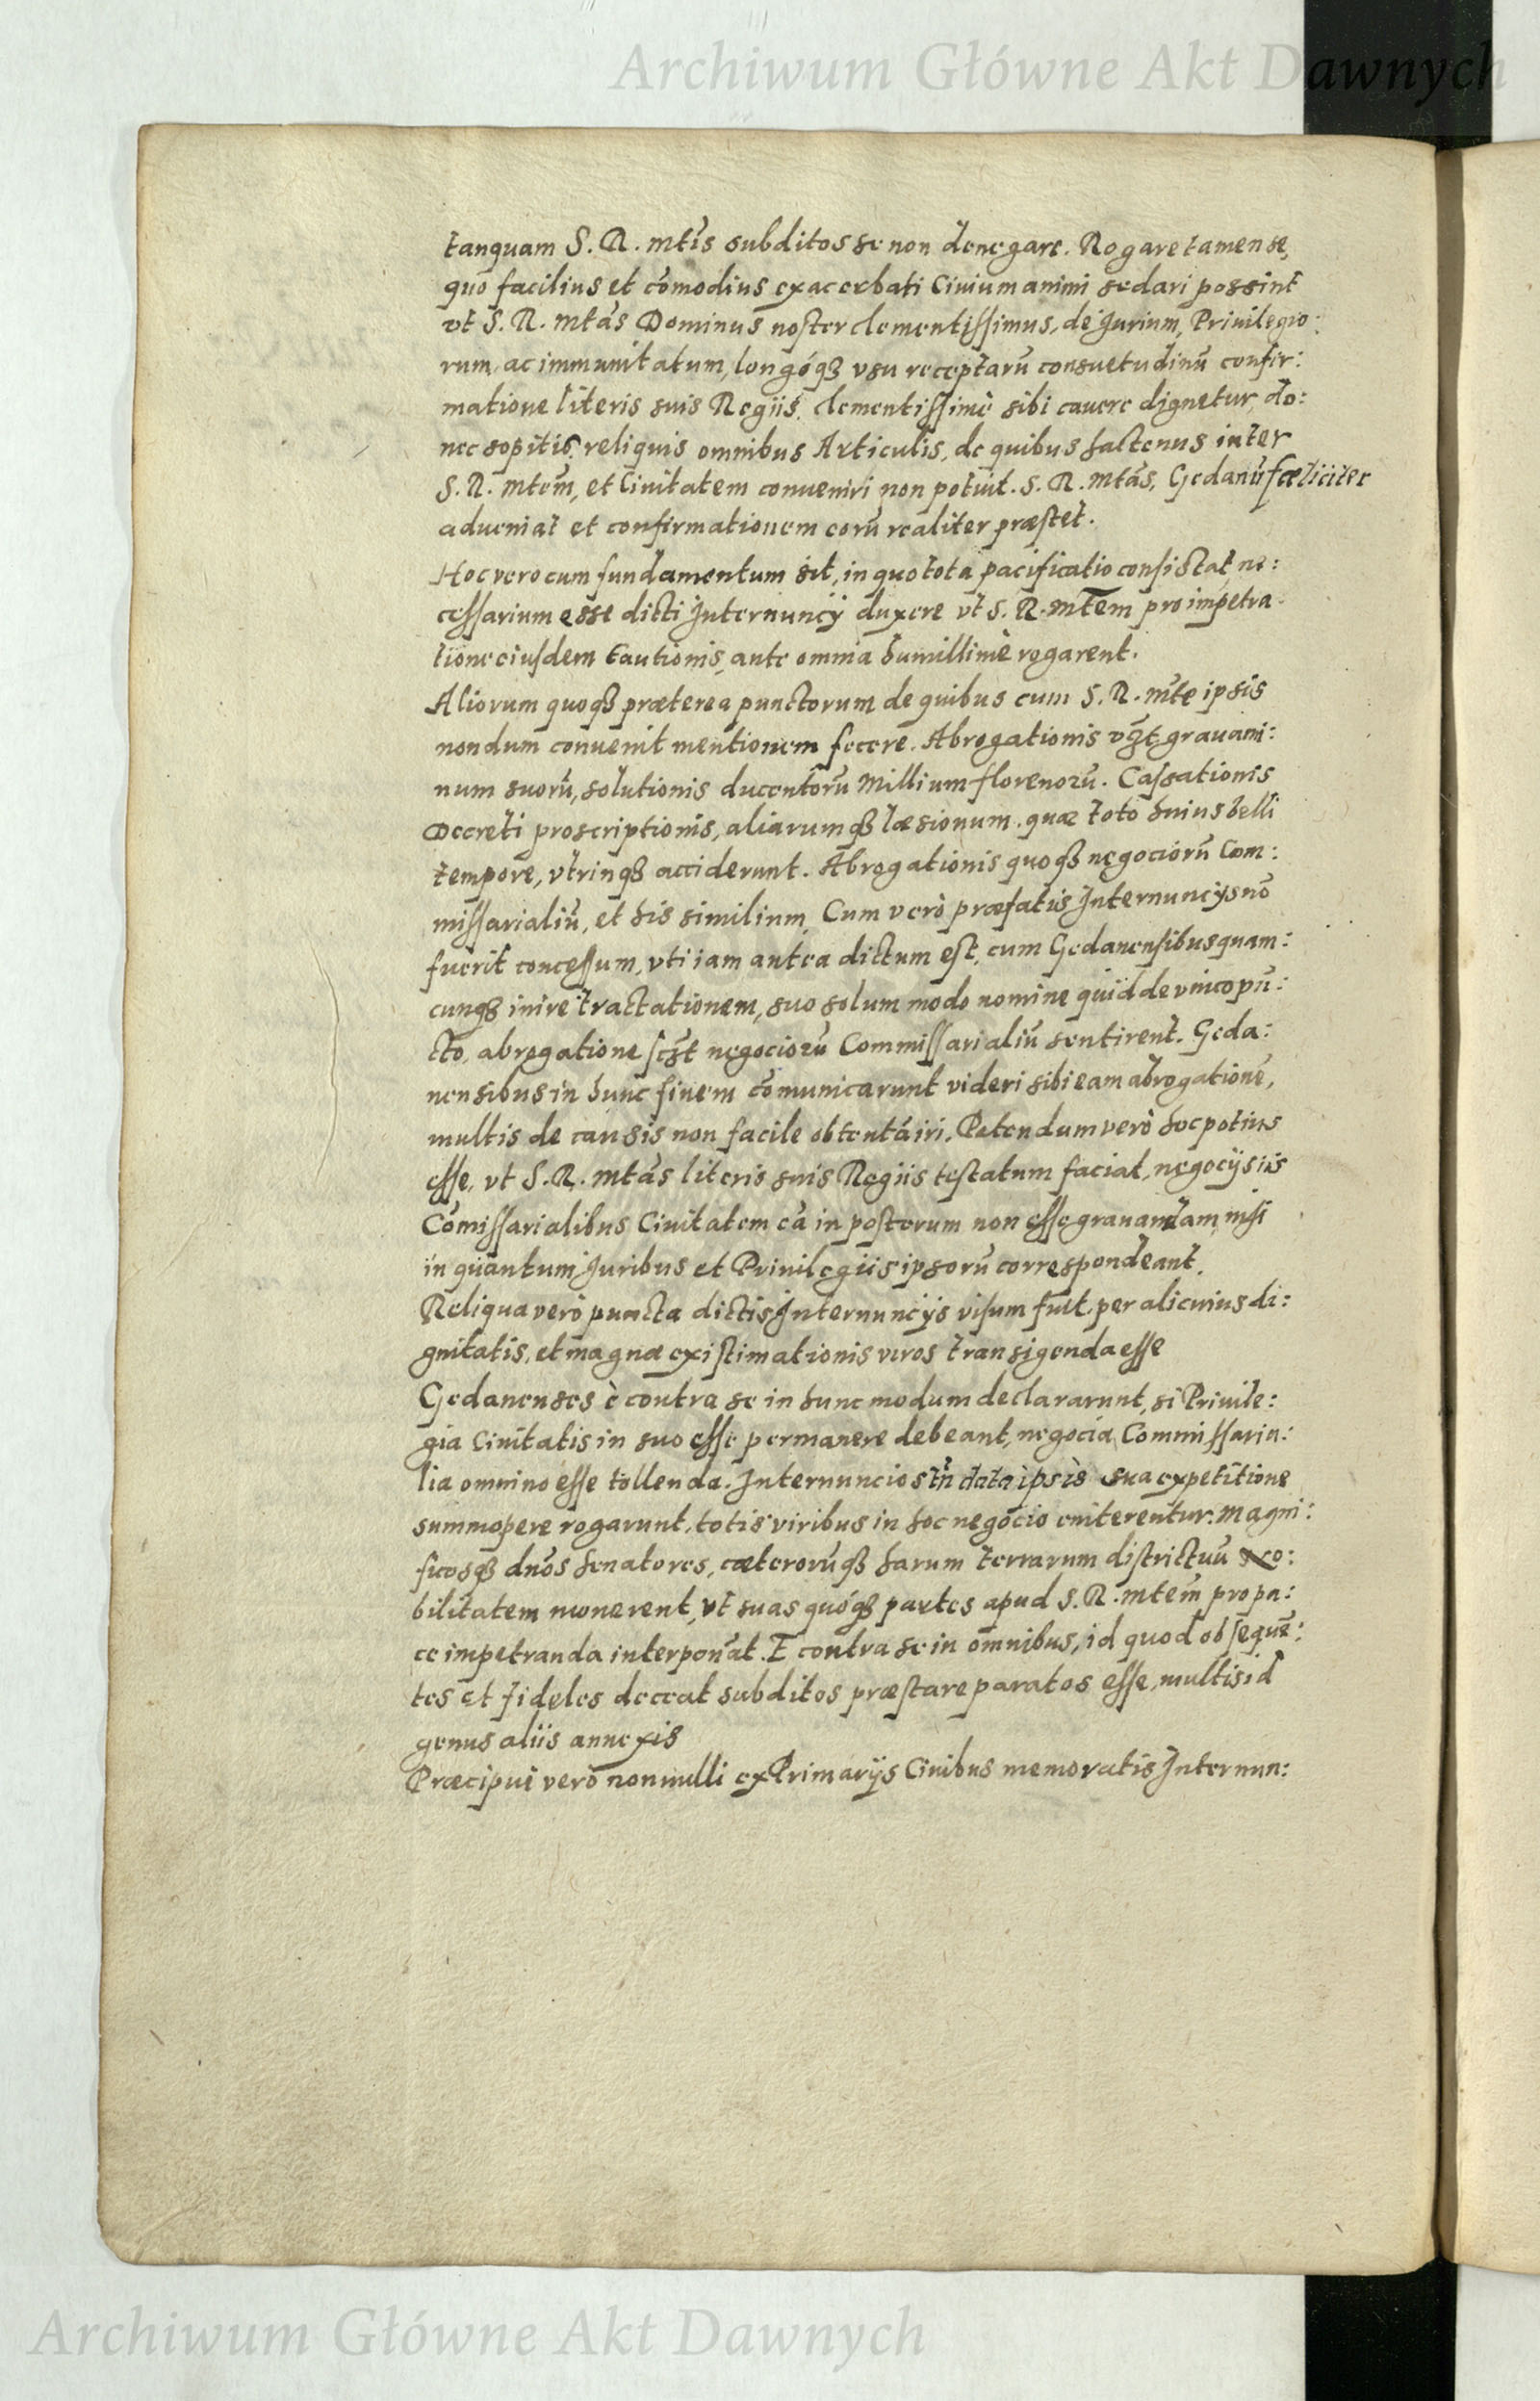 Archiwum Główne Akt Dawnych
tanquam S. R. mtis subditos se non denegare. Rogare tamen se,
quo facilius et cōmodius exacerbati Ciuium animi sedari possint
vt S. R. mtās Dominus noster clementissimus, de Jurium, Priuilegio:
rum, ac immunitatum, longóq3 vsu receptarū consuetudinū confir:
matione literis suis Regiis, clementissimè sibi cauere dignetur, do:
nec sopitis reliquis omnibus Articulis, de quibus hactenus inter
S. R. mtem̄, et Ciuitatem conueniri non potuit. S. R. mtās, Gedanū fœliciter
adueniat et confirmationem eorū realiter præstet.
Hoc vero cum fundamentum sit, in quo tota pacificatio consistat ne:
cessarium esse dicti Internuncij duxere vt S. R. mtem pro impetra
tione eiusdem Cautionis, ante omnia humillimè rogarent.
Aliorum quoq3 præterea punctorum de quibus cum S. R. mte ipsis
nondum conuenit mentionem fecere. Abrogationis v3t grauami:
num suorū, solutionis ducentorū Millium florenorū. Cassationis
Decreti proscriptionis, aliarumq3 læsionum quæ toto huius belli
tempore, vtrinq3 acciderunt. Abrogationis quoq3 negociorū Com:
missarialiū, et his similium. Cum verò præfatis Internuncijs nō
fuerit concessum, vti iam antea dictum est, cum Gedanensibus quam:
cunq3 inire tractationem, suo solum modo nomine quid de vnico pū:
cto, abrogatione sc3t negociorū Commissarialiū sentirent. Geda:
nensibus in hunc finem cōmunicarunt videri sibi eam abrogationē,
multis de causis non facile obtentā iri. Petendum verò hoc potius
esse, vt S. R. mtās literis suis Regiis testatum faciat, negocijs iis
Cōmissarialibus Ciuitatem eā in posterum non esse grauandam, nisi
in quantum Juribus et Priuilegiis ipsorū correspondeant.
Reliqua verò puncta dictis Internuncijs visum fuit per alicuius di:
gnitatis, et magnæ existimationis viros transigenda esse
Gedanenses è contra se in hunc modum declararunt, si Priuile:
gia Ciuitatis in suo esse permanere debeant, negocia Commissaria:
lia omnino esse tollenda. Internuncios tn̄ data ipsis sua expetitione
summopere rogarunt, totis viribus in hoc negocio eniterentur. Magni:
ficosq3 dnōs Senatores, cæterorūq3 harum terrarum districtuū No:
bilitatem monerent, vt suas quóq3 partes apud S. R. mtem̄ pro pa:
ce impetranda interponāt. E contra se in omnibus, id quod obsequē:
tes et fideles deceat subditos præstare paratos esse, multis id
genus aliis annexis
Præcipui verò nonnulli ex Primarijs Ciuibus memoratis Internun:
Archiwum Główne Akt Dawnych